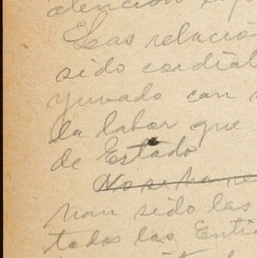 atención
Las relacio
sido cordial
yuvado con
la labor que
de Estado
No se ha re
han sido las
todas las Enti